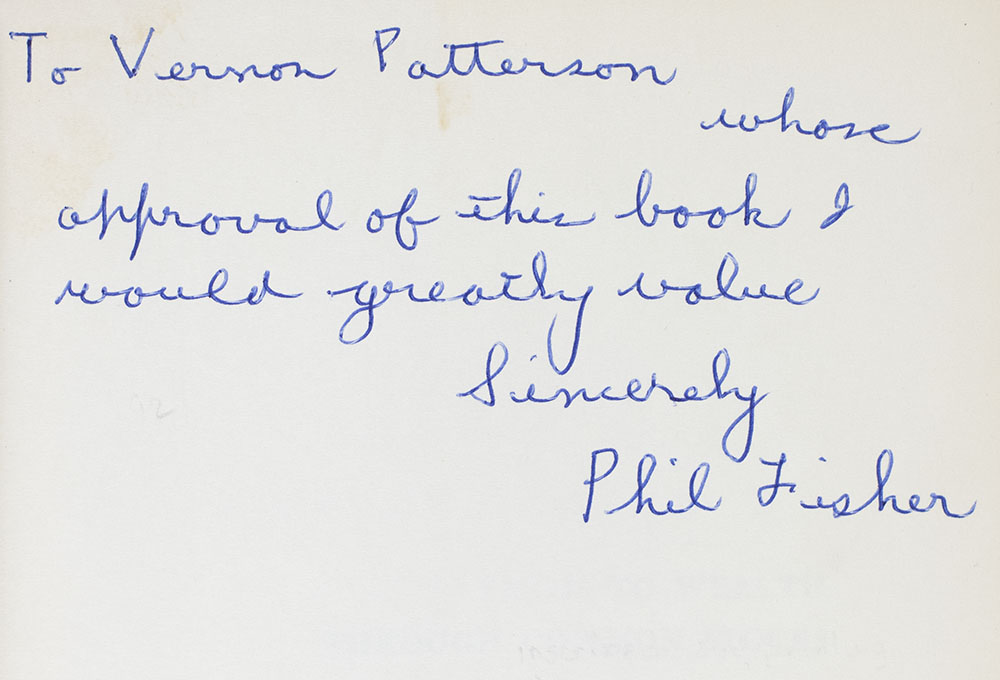 To Vernon Patterson
whose
approval of this book I
would greatly value
Sincerely
Phil Fisher